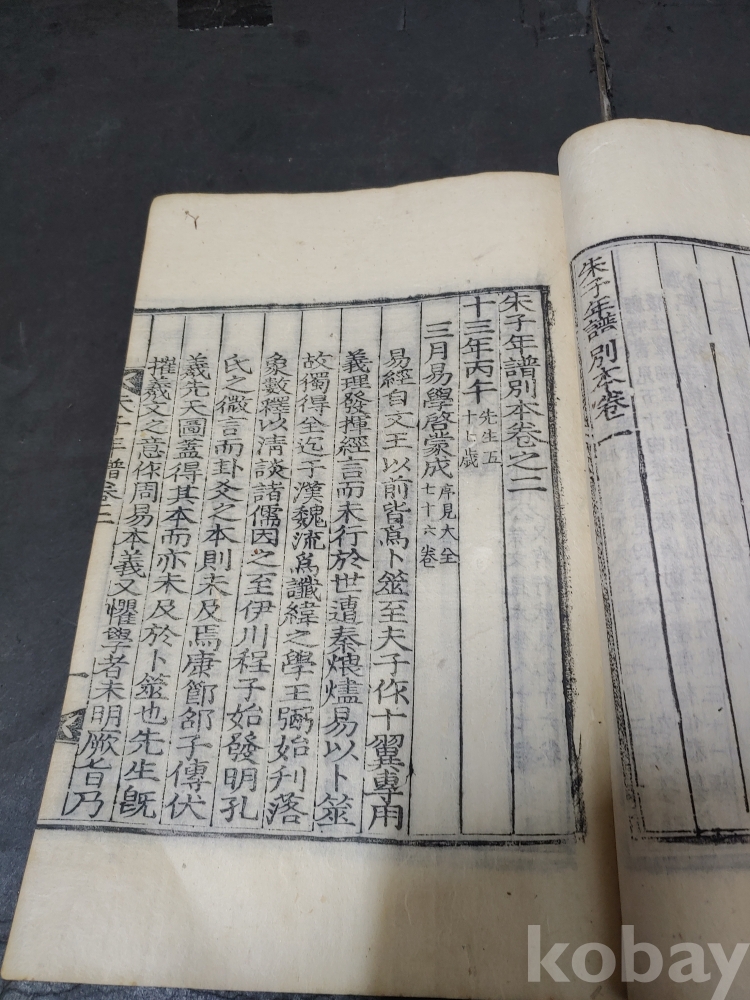 朱子年譜別本卷一
朱子年譜別本卷之二
十三年丙午先生五十七歲
三月易學啓蒙成序見大全七十六卷
易經自文王以前皆爲卜筮至夫子作十翼專用
義理發揮經言而未行於世遭秦煨燼易以卜筮
故獨得全迄于漢魏流爲讖緯之學王弼始刋落
象數釋以清談諸儒因之至伊川程子始發明孔
氏之微言而卦爻之本則未及焉康節邵子傳伏
羲先天圖蓋得其本而亦未及於卜筮也先生旣
推羲文之意作周易本義又懼學者未明厥旨乃
朱子年譜卷二
一
kobay